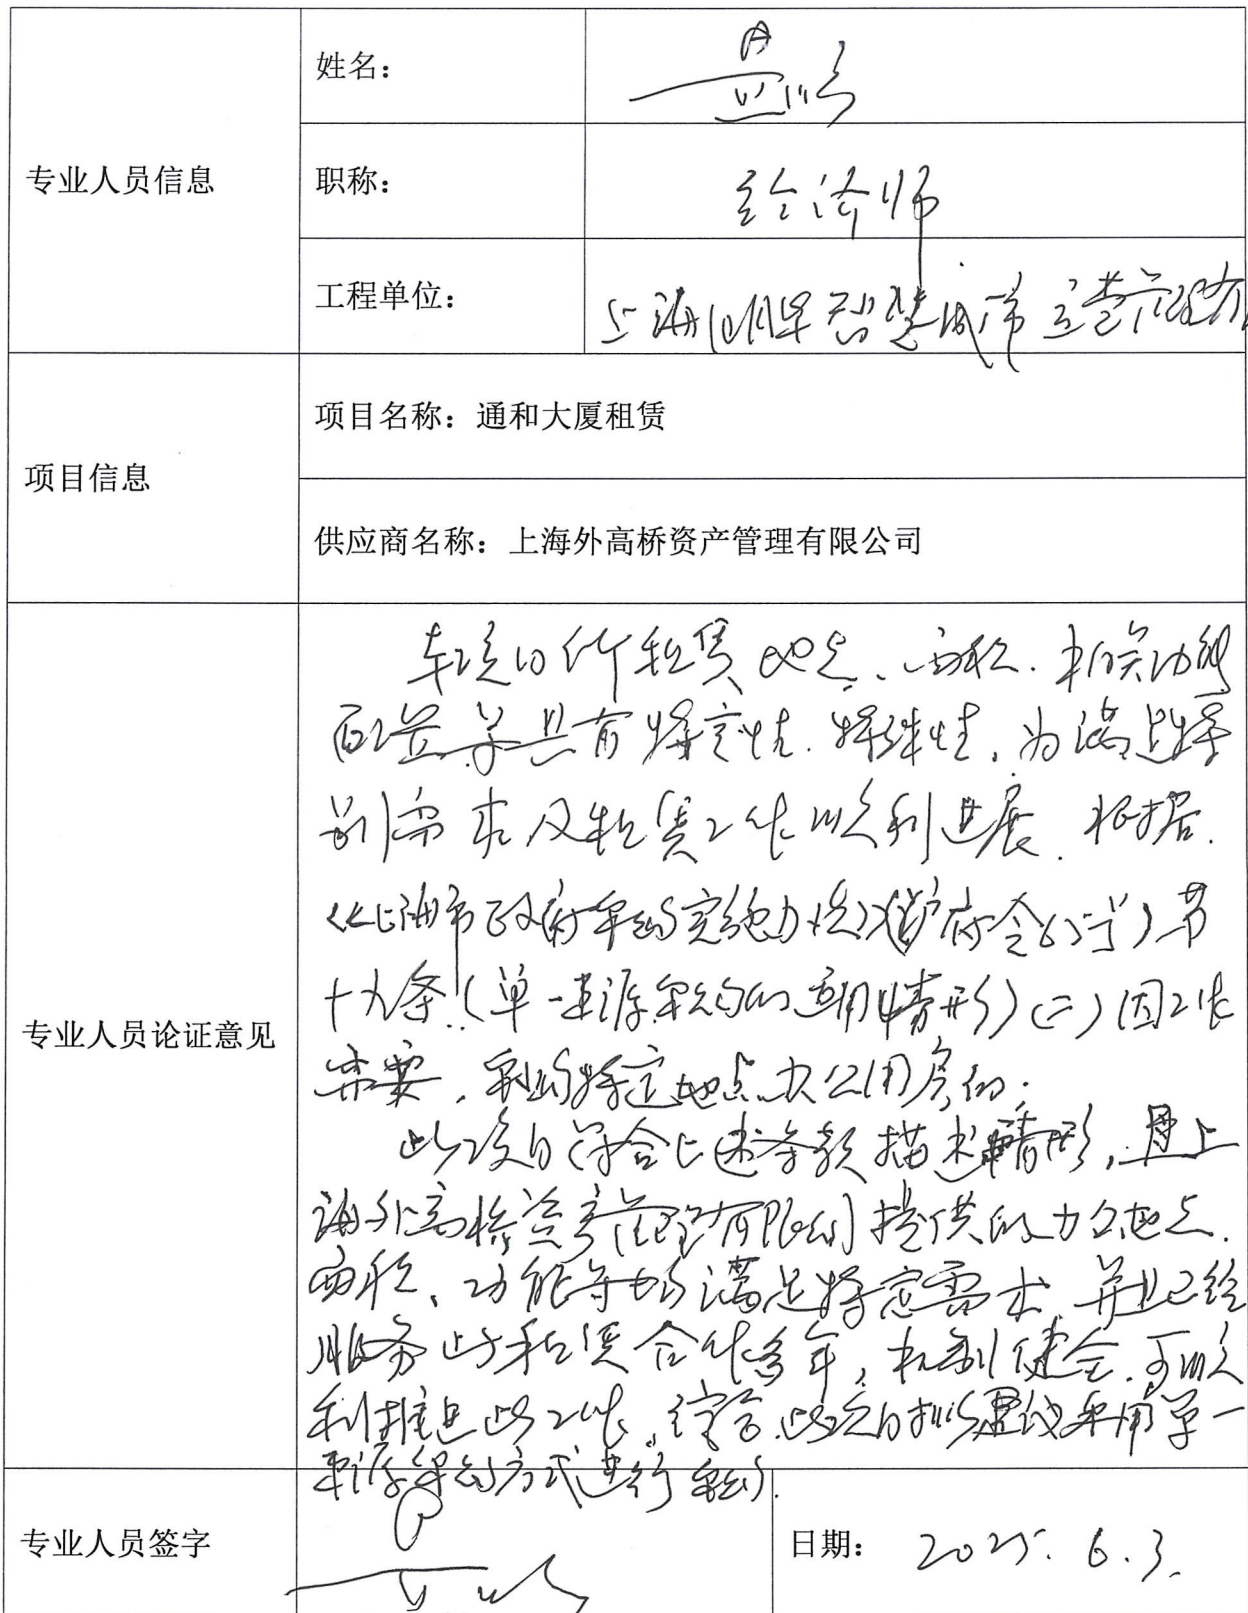 专业人员信息
姓名：
职称：
经济师
工程单位：
上海 智慧城市运营管理有
项目信息
项目名称：通和大厦租赁
供应商名称：上海外高桥资产管理有限公司
专业人员论证意见
本项目所租赁地点、面积、相关功能
配置等具有特定性、特殊性，为满足特
别需求及租赁工作顺利进展，根据
《上海市政府采购实施办法》（沪府令65号）第
十九条（单一来源采购的适用情形）（二）因工作
需要，采购特定地点办公用房的；
此项目符合上述条款描述情形，且上
海外高桥资产管理有限公司提供的办公地点、
面积、功能等均满足特定需求，并且已经
服务此租赁合作多年，机制健全，可顺
利推进此工作，综合，此项目拟建议采用单一
来源采购方式进行采购。
专业人员签字
日期：
2025.6.3.